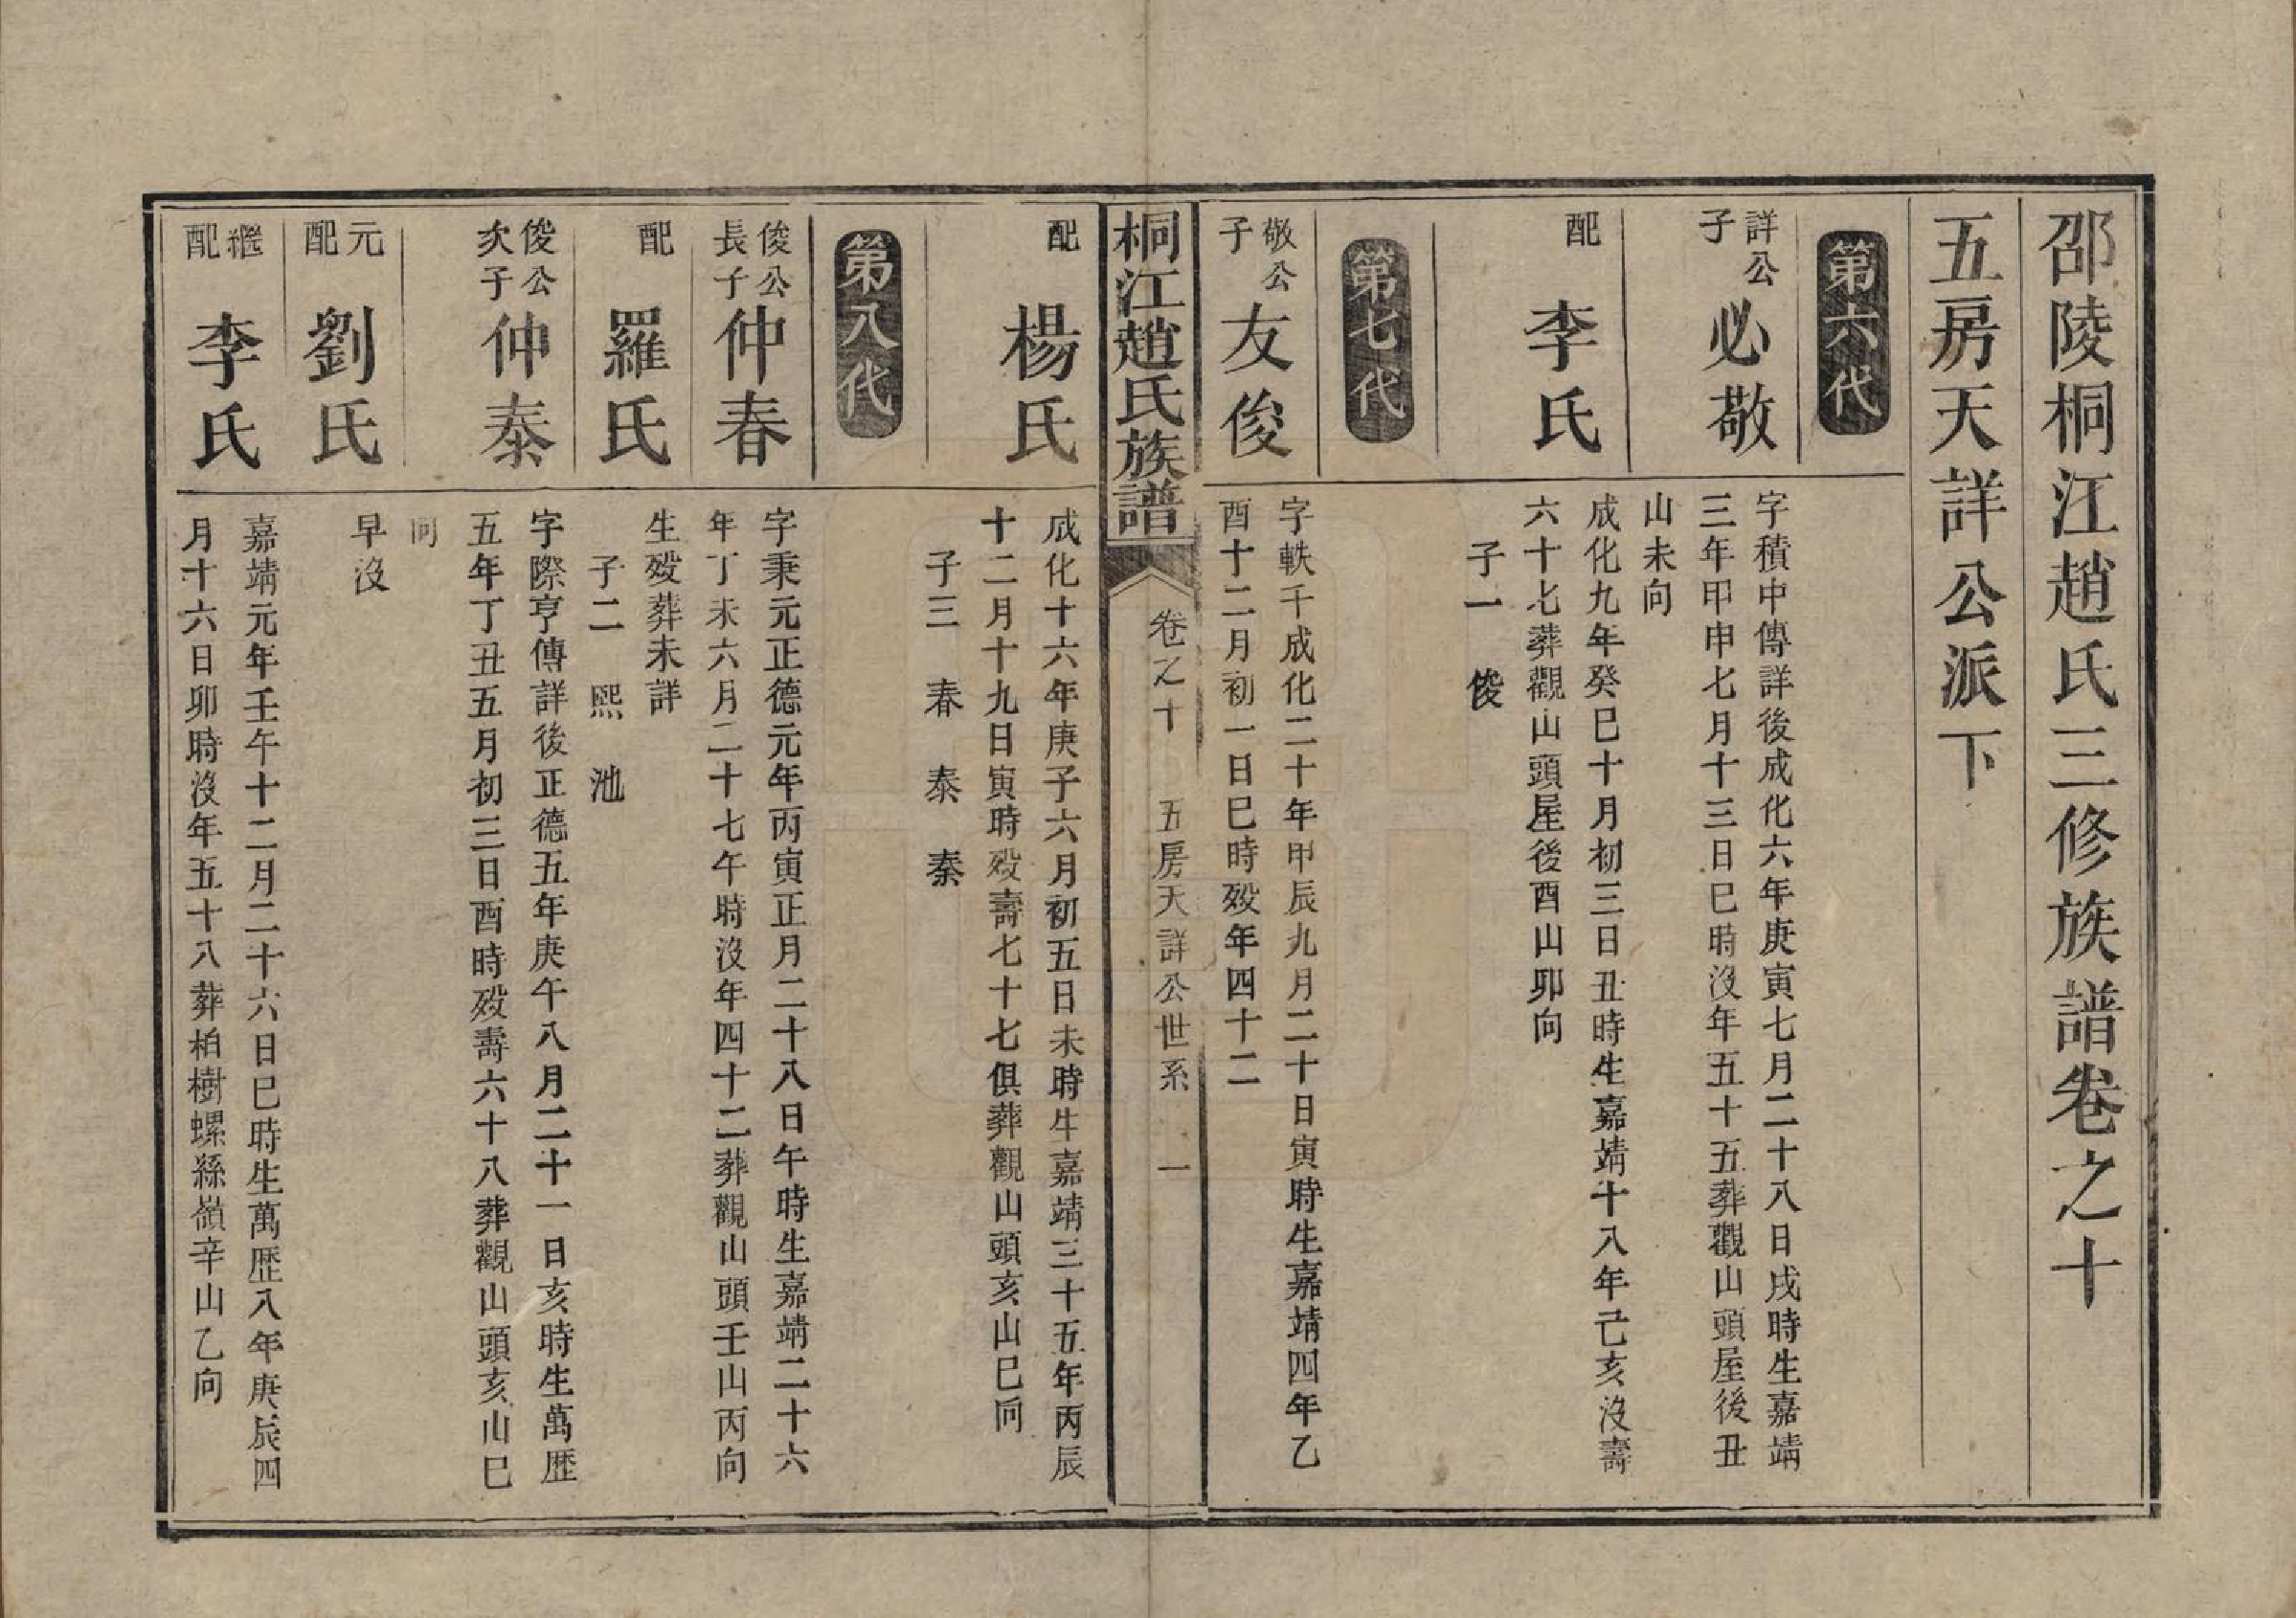 邵陵桐江趙氏三修族譜卷之十
五房天詳公派下
第六代
詳公
子
必敬
字積中傳詳後成化六年庚寅七月二十八日戌時生嘉靖
三年甲申七月十三日巳時沒年五十五葬觀山頭屋後丑
山未向
配
李氏
成化九年癸巳十月初三日丑時生嘉靖十八年己亥沒壽
六十七葬觀山頭屋後酉山卯向
子一 俊
第七代
敬公
子
友俊
字軼千成化二十年甲辰九月二十日寅時生嘉靖四年乙
酉十二月初一日巳時歿年四十二
桐江趙氏族譜
卷之十
五房天詳公世系
一
配
楊氏
成化十六年庚子六月初五日未時生嘉靖三十五年丙辰
十二月十九日寅時歿壽七十七俱葬觀山頭亥山巳向
子三 春 泰 秦
第八代
俊公
長子
仲春
字秉元正德元年丙寅正月二十八日午時生嘉靖二十六
年丁未六月二十七午時沒年四十二葬觀山頭壬山丙向
配
羅氏
生歿葬未詳
子二 熙 池
俊公
次子
仲泰
字際亨傳詳後正德五年庚午八月二十一日亥時生萬歷
五年丁丑五月初三日酉時歿壽六十八葬觀山頭亥山巳
向
元
配
劉氏
早沒
繼
配
李氏
嘉靖元年壬午十二月二十六日巳時生萬歷八年庚辰四
月十六日卯時沒年五十八葬柏樹螺絲嶺辛山乙向